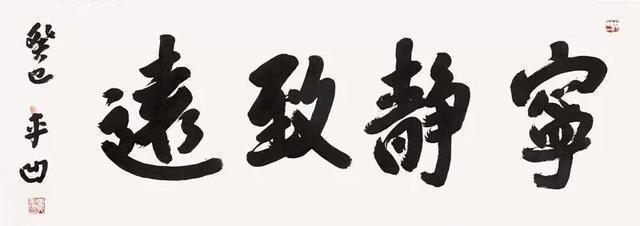 寧靜致遠
癸巳
平凹